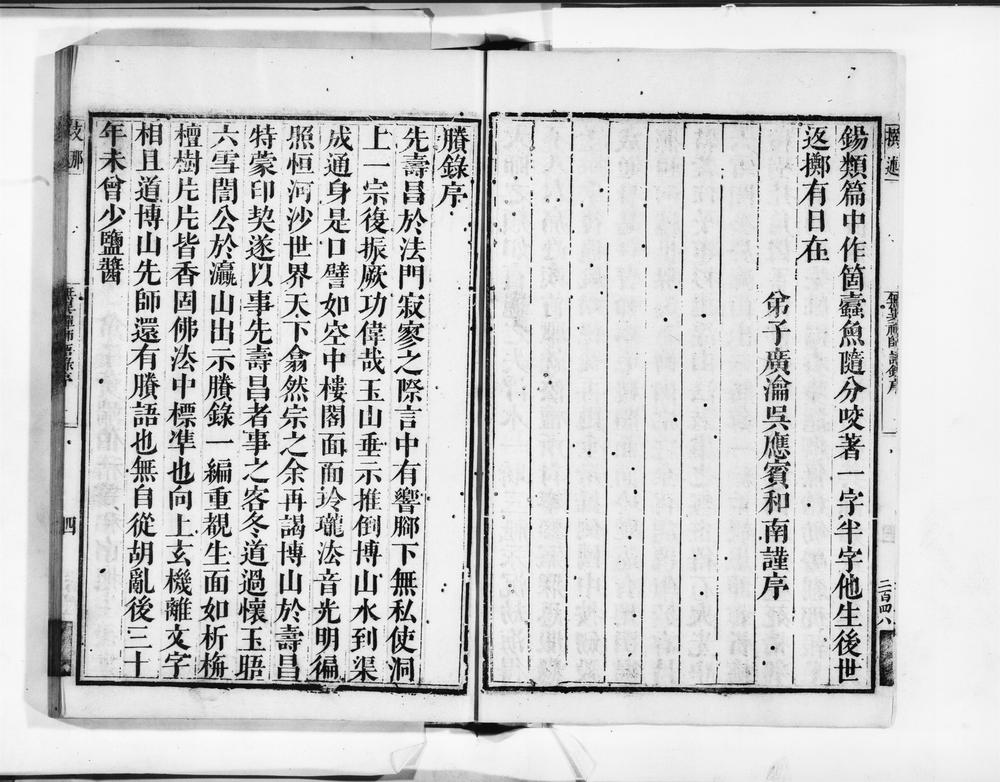 撰述
無異禪師語錄序
二百四八
錫類篇中作箇蠹魚隨分咬著一字半字他生後世
返擲有日在
弟子廣瀹吳應賓和南謹序
賸錄序
先壽昌於法門寂寥之際言中有響腳下無私使洞
上一宗復振厥功偉哉玉山垂示推倒博山水到渠
成通身是口譬如空中樓閣面面玲瓏法音光明徧
照恒河沙世界天下翕然宗之余再謁博山於壽昌
特蒙印契遂以事先壽昌者事之客冬道過懷玉晤
六雪誾公於瀛山出示賸錄一編重覩生面如析栴
檀樹片片皆香固佛法中標準也向上玄機離文字
相且道博山先師還有賸語也無自從胡亂後三十
年未曾少鹽醬
支那
無異禪師語錄序
四